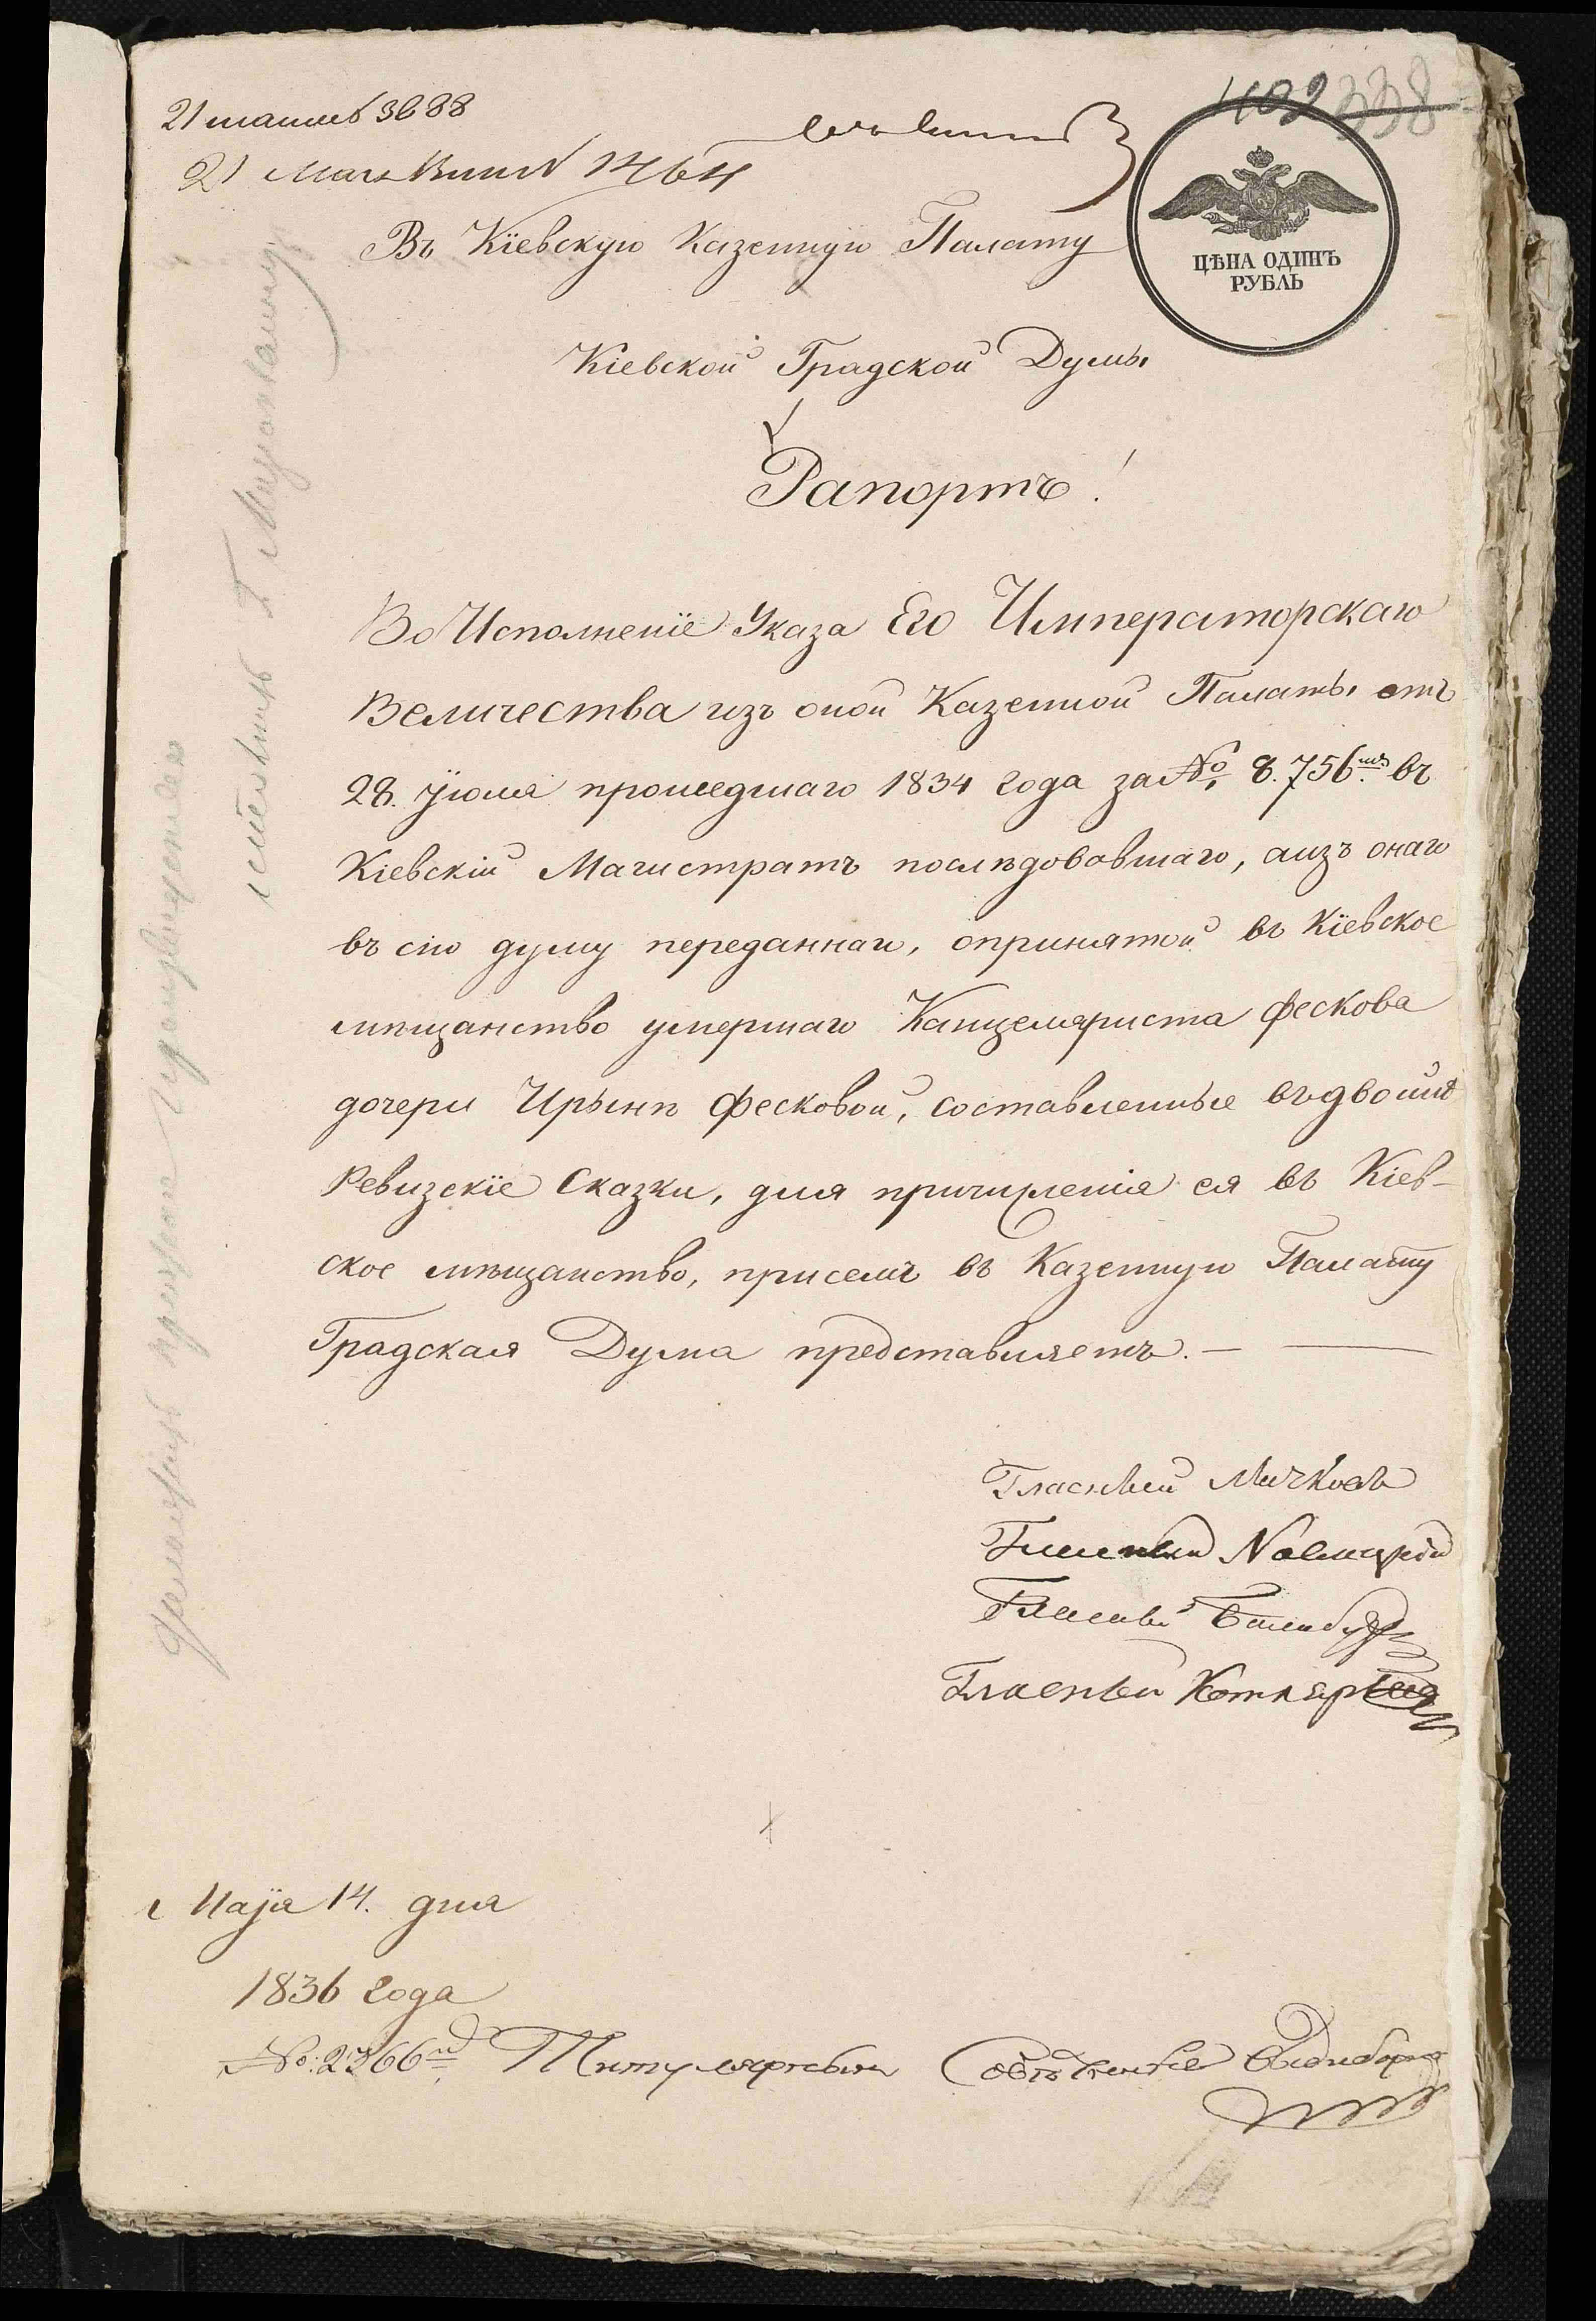 402 338
21 маия 3688
21 Мая 1464
Въ Кіевскую Казенную Палату
ЦѢНА ОДИНЪ
РУБЛЬ
Кіевской Градской Думы
Рапортъ!
Во Исполненіе Указа Его Императорскаго
Величества изъ оной Казенной Палаты отъ
28. Іюля прошедшаго 1834 года за № 8.756мъ въ
Кіевскій Магистратъ послѣдовавшаго, аизъ онаго
въ сію думу переданнаго, опринятой въ Кіевское
мѣщанство умершаго Канцеляриста Фескова
дочери Ирынѣ Фесковой, составленные въдвойнѣ
Ревизскіе Сказки, для причисленія ея въ Кіев-
ское мѣщанство, присемъ въ Казенную Палату
Градская Дума представляетъ.—
Гласный Мичковъ
Гласный
Гласный
Гласный Котляр
Маія 14. дня
1836 года
№: 2366й Титулярный Совѣтникъ